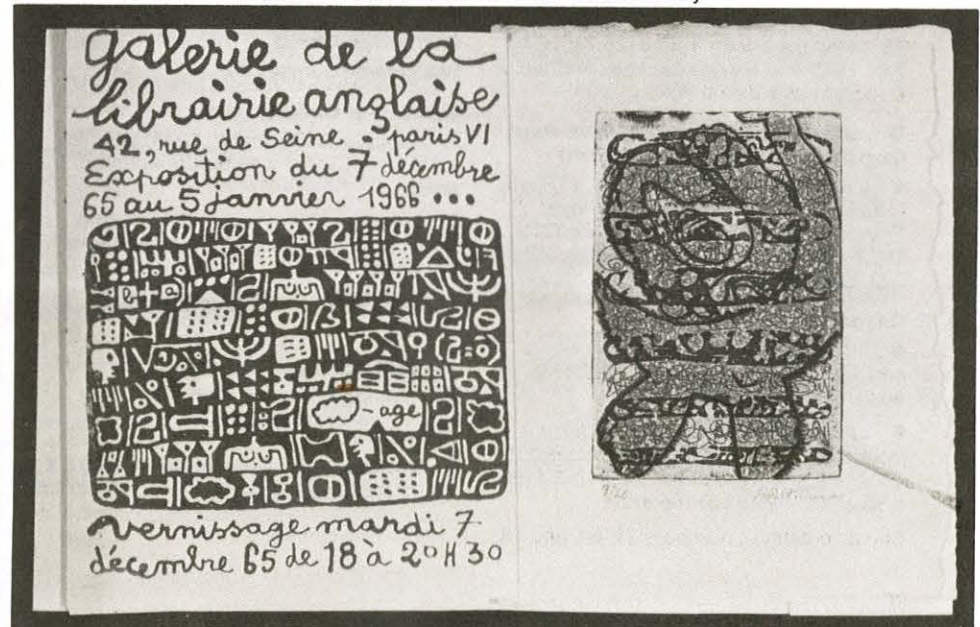 galerie de la
librairie anglaise
42, rue de Seine . paris VI
Exposition du 7 décembre
65 au 5 janvier 1966 •••
-age
vernissage mardi 7
décembre 65 de 18 à 20 H 30